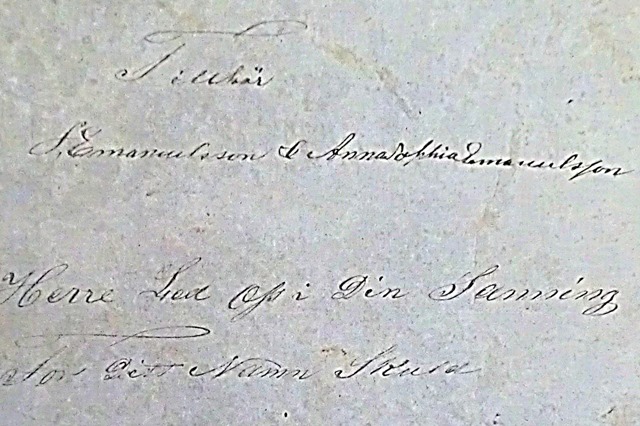 Tillhör
S, Emanuelsson & Anna Sophia Emanuelsson
Herre Led Oss i Din Sanning
För Ditt Namn Skuld